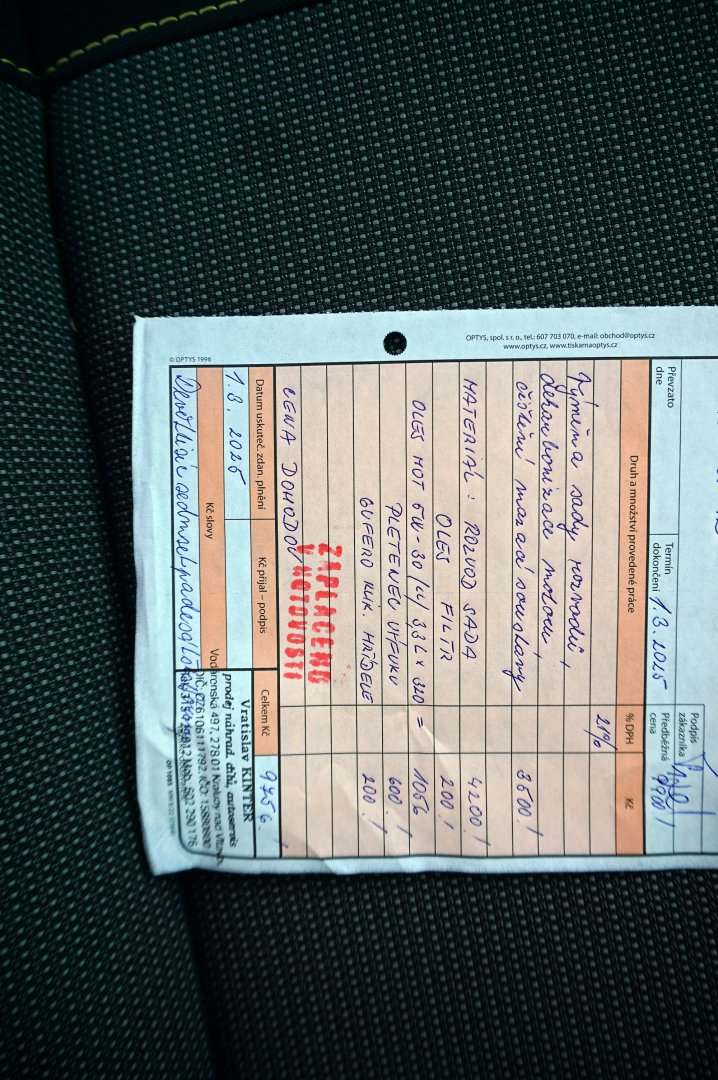 OPTYS, spol. s r. o., tel.: 607 703 070, e-mail: obchod@optys.cz
www.optys.cz, www.tiskarnaoptys.cz
Podpis zákazníka
Převzato dne
Termín dokončení 1.3.2025
Předběžná cena
Druh a množství provedené práce % DPH Kč
21%
Výměna sady rozvodů,
dekarbonizace motoru,
čištění mazací soustavy 3500.!
MATERIÁL : ROZVOD SADA 4200.!
OLEJ FILTR 200.!
OLEJ MOT 5W-30 3,3L x 320 = 1056
PLETENEC VÝFUKU 600.!
GUFERO KLIK HŘÍDELE 200.!
ZAPLACENO
V HOTOVOSTI
CENA DOHODOU
Datum uskuteč. zdan. plnění Kč přijal – podpis Celkem Kč 9756.!
1.3.2025
Kč slovy
Devěttisíc sedmset padesát
Vratislav KINTER
prodej náhrad. dílů, autoservis
Vodárenská 497, 278 01 Kralupy nad Vltavou
DIČ: CZ6106111792, IČO: 15880800
Mob. 602 290 176
© OPTYS 1996
OP 1085